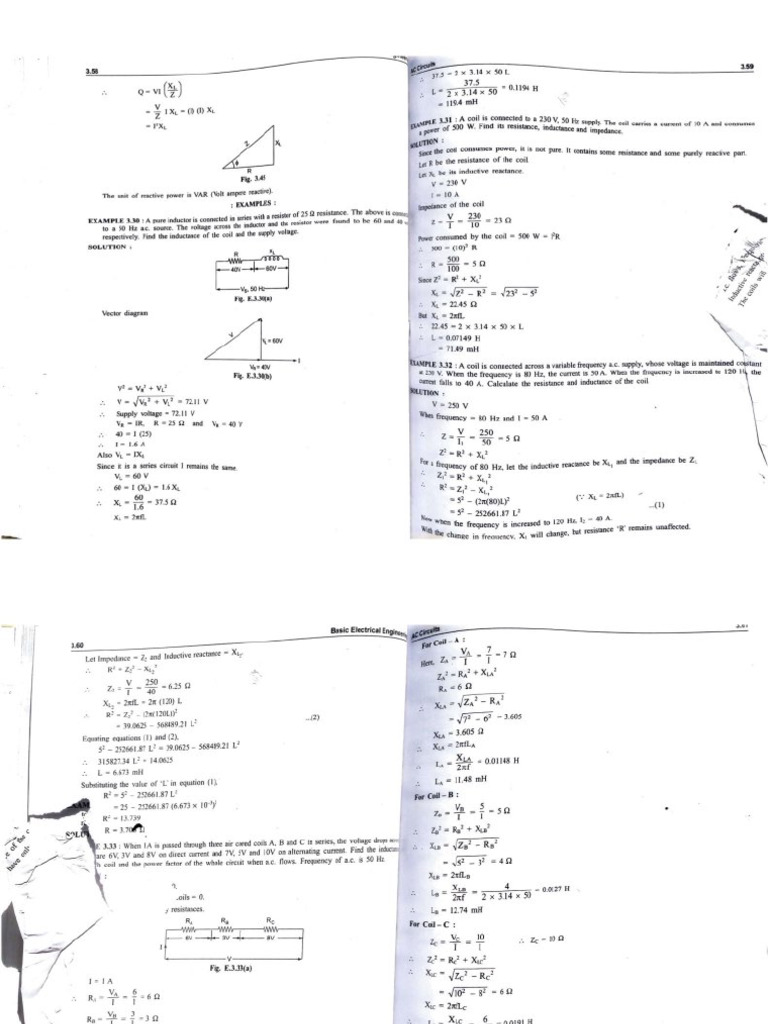 3.58
∴ Q = VI (X_L/Z)
= V/Z I X_L = (I) (I) X_L
= I²X_L
Z
X_L
θ
R
Fig. 3.4f
The unit of reactive power is VAR (Volt ampere reactive).
: EXAMPLES :
EXAMPLE 3.30 : A pure inductor is connected in series with a resister of 25 Ω resistance. The above is
to a 50 Hz a.c. source. The voltage across the inductor and the resistor were found to be 60 and 40
respectively. Find the inductance of the coil and the supply voltage.
SOLUTION :
R
40V 60V
V_S, 50 Hz
Fig. E.3.30(a)
Vector diagram
V
V_L = 60V
V_R = 40V
I
Fig. E.3.30(b)
V² = V_R² + V_L²
∴ V = √(V_R² + V_L²) = 72.11 V
∴ Supply voltage = 72.11 V
V_R = IR, R = 25 Ω and V_R = 40 V
∴ 40 = I (25)
∴ I = 1.6 A
Also V_L = IX_L
Since it is a series circuit I remains the same.
V_L = 60 V
∴ 60 = I (X_L) = 1.6 X_L
∴ X_L = 60/1.6 = 37.5 Ω
X_L = 2πfL
AC Circuits 3.59
∴ 37.5 = 2 × 3.14 × 50 L
∴ L = 37.5/(2 × 3.14 × 50) = 0.1194 H
= 119.4 mH
EXAMPLE 3.31 : A coil is connected to a 230 V, 50 Hz supply. The coil carries a current of 10 A and consumes
a power of 500 W. Find its resistance, inductance and impedance.
SOLUTION :
Since the coil consumes power, it is not pure. It contains some resistance and some purely reactive part.
Let R be the resistance of the coil.
Let X_L be its inductive reactance.
V = 230 V
I = 10 A
Impedance of the coil
Z = V/I = 230/10 = 23 Ω
Power consumed by the coil = 500 W = I²R
∴ 500 = (10)² R
∴ R = 500/100 = 5 Ω
Since Z² = R² + X_L²
X_L = √(Z² − R²) = √(23² − 5²)
∴ X_L = 22.45 Ω
But X_L = 2πfL
∴ 22.45 = 2 × 3.14 × 50 × L
∴ L = 0.07149 H
= 71.49 mH
EXAMPLE 3.32 : A coil is connected across a variable frequency a.c. supply, whose voltage is maintained constant
at 250 V. When the frequency is 80 Hz, the current is 50 A. When the frequency is increased to 120 Hz, the
current falls to 40 A. Calculate the resistance and inductance of the coil
SOLUTION :
V = 250 V
When frequency = 80 Hz and I = 50 A
∴ Z = V/I₁ = 250/50 = 5 Ω
Z² = R² + X_L²
For a frequency of 80 Hz, let the inductive reactance be X_L₁ and the impedance be Z₁
∴ Z₁² = R² + X_L₁²
∴ R² = Z₁² − X_L₁²
= 5² − (2π(80)L)² (∵ X_L = 2πfL)
= 5² − 252661.87 L² ...(1)
Now when the frequency is increased to 120 Hz, I₂ = 40 A.
With the change in frequency, X_L will change, but resistance 'R' remains unaffected.
Inductive
The coils will
3.60 Basic Electrical
Let Impedance = Z₂ and Inductive reactance = X_L₂
∴ R² = Z₂² − X_L₂²
∴ Z₂ = V/I = 250/40 = 6.25 Ω
X_L₂ = 2πfL = 2π (120) L
∴ R² = Z₂² − (2π(120L))²
= 39.0625 − 568489.21 L² ...(2)
Equating equations (1) and (2),
5² − 252661.87 L² = 39.0625 − 568489.21 L²
∴ 315827.34 L² = 14.0625
∴ L = 6.673 mH
Substituting the value of 'L' in equation (1),
R² = 5² − 252661.87 L²
= 25 − 252661.87 (6.673 × 10⁻³)²
R² = 13.739
R = 3.70 Ω
3.33 : When 1A is passed through three air cored coils A, B and C in series, the voltage drops
are 6V, 3V and 8V on direct current and 7V, 5V and 10V on alternating current. Find the
coil and the power factor of the whole circuit when a.c. flows. Frequency of a.c. is 50 Hz.
:
oils = 0.
resistances.
R_A R_B R_C
6V 3V 8V
I
V
Fig. E.3.33(a)
I = 1 A
∴ R_A = V_A/I = 6/1 = 6 Ω
R_B = V_B/I = 3/1 = 3 Ω
AC Circuits
For Coil – A :
Here, Z_A = V_A/I = 7/1 = 7 Ω
Z_A² = R_A² + X_LA²
R_A = 6 Ω
∴ X_LA = √(Z_A² − R_A²)
= √(7² − 6²) = 3.605
X_LA = 3.605 Ω
∴ X_LA = 2πfL_A
∴ L_A = X_LA/2πf = 0.01148 H
∴ L_A = 11.48 mH
For Coil – B :
Z_B = V_B/I = 5/1 = 5 Ω
∴ Z_B² = R_B² + X_LB²
∴ X_LB = √(Z_B² − R_B²)
= √(5² − 3²) = 4 Ω
X_LB = 2πfL_B
∴ L_B = X_LB/2πf = 4/(2 × 3.14 × 50) = 0.0127 H
∴ L_B = 12.74 mH
For Coil – C :
Z_C = V_C/I = 10/1 ∴ Z_C = 10 Ω
∴ Z_C² = R_C² + X_LC²
∴ X_LC = √(Z_C² − R_C²)
= √(10² − 8²) = 6 Ω
X_LC = 2πfL_C
X_LC 6